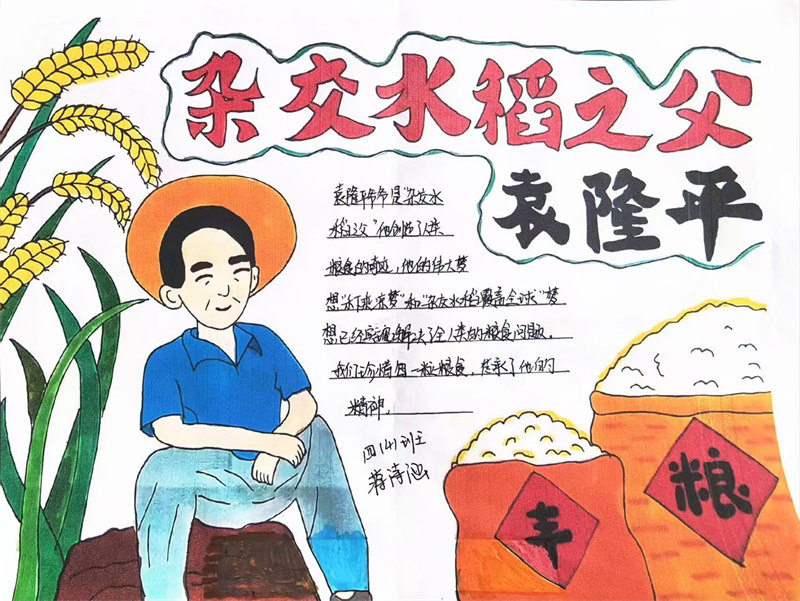 杂交水稻之父
袁隆平
袁隆平爷爷是"杂交水
稻之父"他创造了人类
粮食的奇迹，他的伟大梦
想"禾下乘凉梦"和"杂交水稻覆盖全球"梦
想已经 解决了全人类的粮食问题。
我们珍惜每一粒粮食，传承了他的
精神。
四(4)班
丰
粮